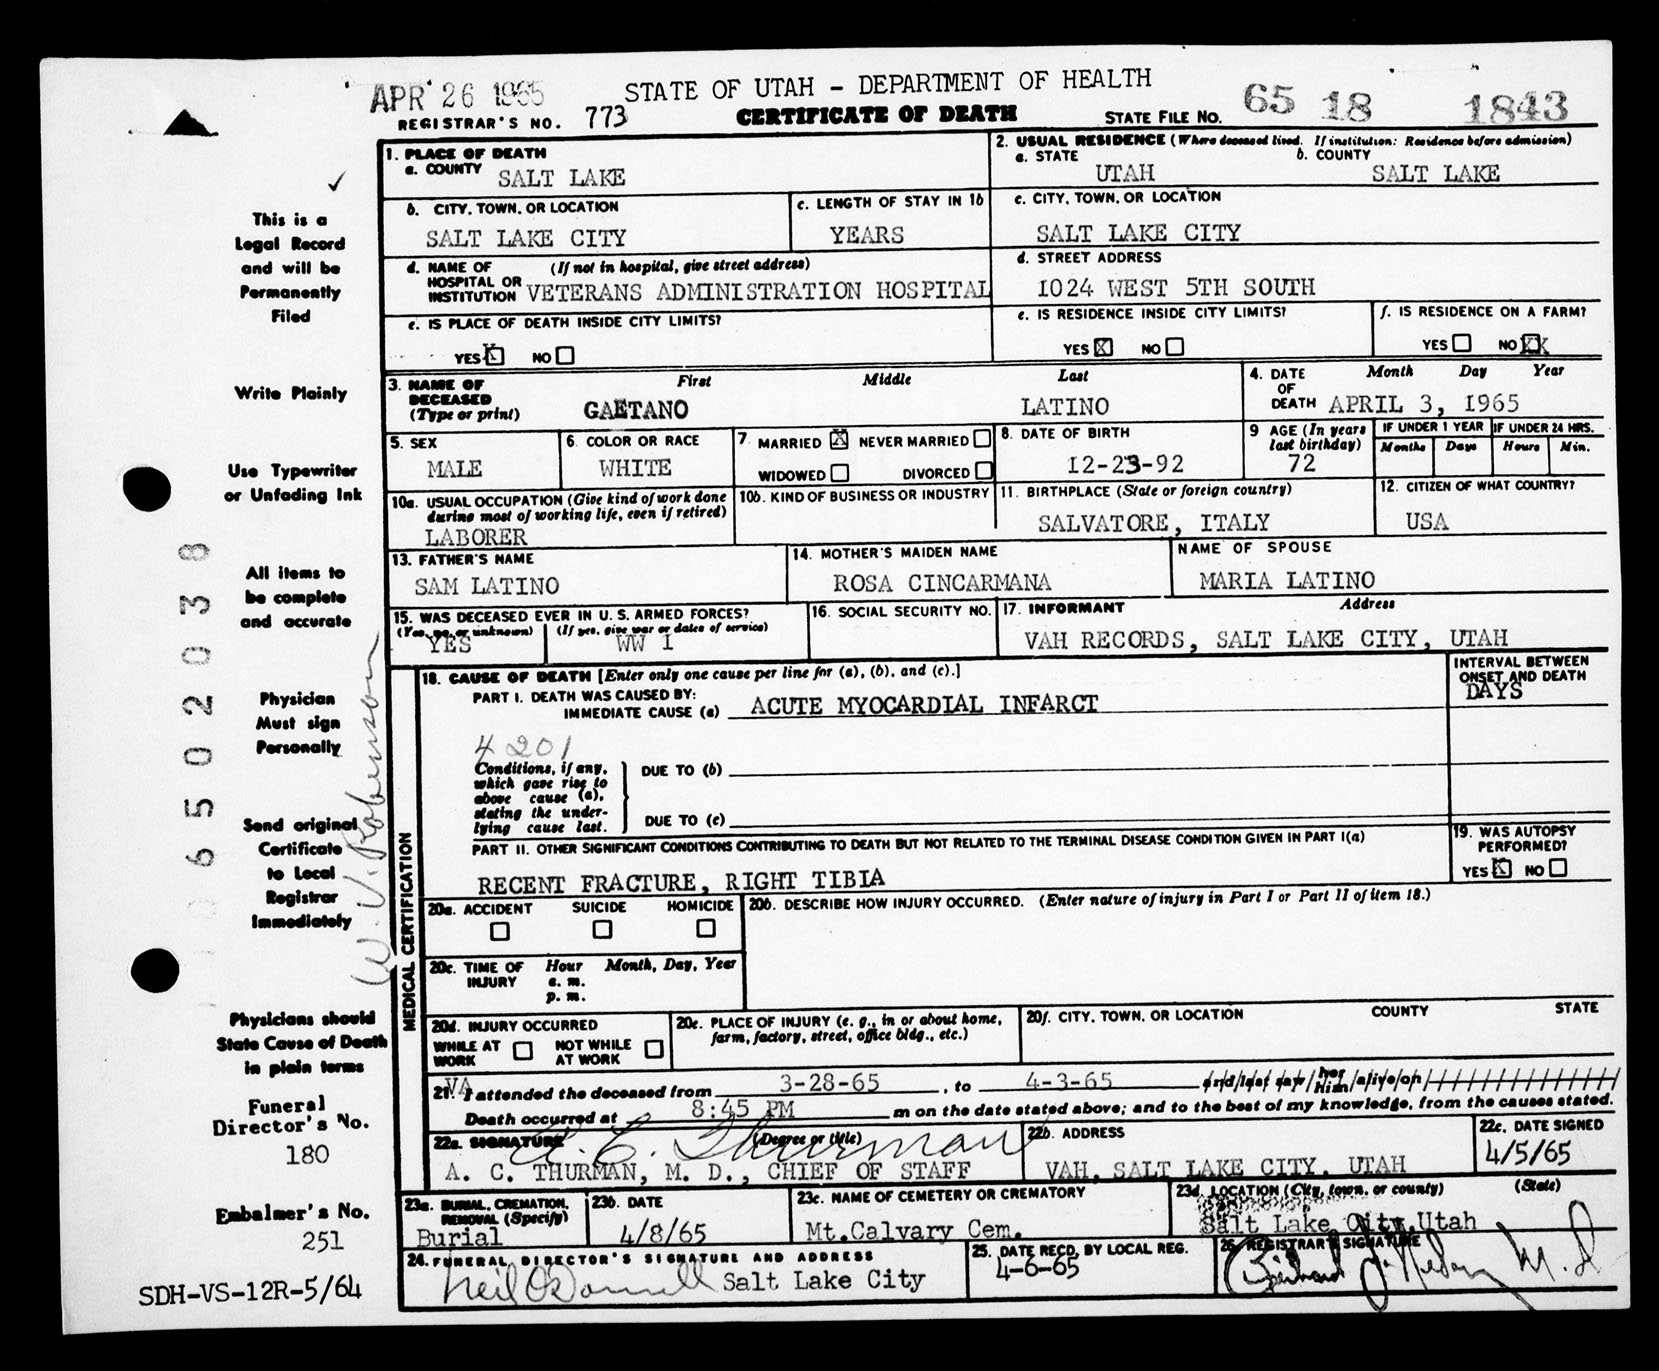 APR 26 1965
STATE OF UTAH - DEPARTMENT OF HEALTH
REGISTRAR'S NO. 773
CERTIFICATE OF DEATH
STATE FILE NO. 65 18 1843
This is a
Legal Record
and will be
Permanently
Filed
Write Plainly
Use Typewriter
or Unfading Ink
All items to
be complete
and accurate
Physician
Must sign
Personally
Send original
Certificate
to Local
Registrar
Immediately
Physicians should
State Cause of Death
in plain terms
Funeral
Director's No.
180
Embalmer's No.
251
SDH-VS-12R-5/64
W. V. Roberson
6502038
1. PLACE OF DEATH
a. COUNTY SALT LAKE
2. USUAL RESIDENCE (Where deceased lived. If institution: Residence before admission)
a. STATE UTAH
b. COUNTY SALT LAKE
b. CITY, TOWN, OR LOCATION
SALT LAKE CITY
c. LENGTH OF STAY IN 1b
YEARS
c. CITY, TOWN, OR LOCATION
SALT LAKE CITY
d. NAME OF HOSPITAL OR INSTITUTION (If not in hospital, give street address)
VETERANS ADMINISTRATION HOSPITAL
d. STREET ADDRESS
1024 WEST 5TH SOUTH
e. IS PLACE OF DEATH INSIDE CITY LIMITS?
YES X NO
e. IS RESIDENCE INSIDE CITY LIMITS?
YES X NO
f. IS RESIDENCE ON A FARM?
YES NO XX
3. NAME OF DECEASED (Type or print)
First Middle Last
GAETANO LATINO
4. DATE OF DEATH Month Day Year
APRIL 3, 1965
5. SEX
MALE
6. COLOR OR RACE
WHITE
7. MARRIED X NEVER MARRIED
WIDOWED DIVORCED
8. DATE OF BIRTH
12-23-92
9 AGE (In years last birthday)
72
IF UNDER 1 YEAR
Months Days
IF UNDER 24 HRS.
Hours Min.
10a. USUAL OCCUPATION (Give kind of work done during most of working life, even if retired)
LABORER
10b. KIND OF BUSINESS OR INDUSTRY
11. BIRTHPLACE (State or foreign country)
SALVATORE, ITALY
12. CITIZEN OF WHAT COUNTRY?
USA
13. FATHER'S NAME
SAM LATINO
14. MOTHER'S MAIDEN NAME
ROSA CINCARMANA
NAME OF SPOUSE
MARIA LATINO
15. WAS DECEASED EVER IN U. S. ARMED FORCES?
(Yes, no, or unknown) (If yes, give war or dates of service)
YES WW I
16. SOCIAL SECURITY NO.
17. INFORMANT Address
VAH RECORDS, SALT LAKE CITY, UTAH
MEDICAL CERTIFICATION
18. CAUSE OF DEATH [Enter only one cause per line for (a), (b), and (c).]
INTERVAL BETWEEN ONSET AND DEATH
DAYS
PART I. DEATH WAS CAUSED BY:
IMMEDIATE CAUSE (a) ACUTE MYOCARDIAL INFARCT
4201
Conditions, if any, which gave rise to above cause (a), stating the underlying cause last.
DUE TO (b)
DUE TO (c)
PART II. OTHER SIGNIFICANT CONDITIONS CONTRIBUTING TO DEATH BUT NOT RELATED TO THE TERMINAL DISEASE CONDITION GIVEN IN PART I(a)
RECENT FRACTURE, RIGHT TIBIA
19. WAS AUTOPSY PERFORMED?
YES X NO
20a. ACCIDENT SUICIDE HOMICIDE
20b. DESCRIBE HOW INJURY OCCURRED. (Enter nature of injury in Part I or Part II of item 18.)
20c. TIME OF INJURY Hour Month, Day, Year
a. m.
p. m.
20d. INJURY OCCURRED
WHILE AT WORK NOT WHILE AT WORK
20e. PLACE OF INJURY (e. g., in or about home, farm, factory, street, office bldg., etc.)
20f. CITY, TOWN, OR LOCATION COUNTY STATE
21. VA I attended the deceased from 3-28-65, to 4-3-65 and last saw her him alive on
Death occurred at 8:45 PM m on the date stated above; and to the best of my knowledge, from the causes stated.
22a. SIGNATURE (Degree or title)
A. C. Thurman
A. C. THURMAN, M. D., CHIEF OF STAFF
22b. ADDRESS
VAH, SALT LAKE CITY, UTAH
22c. DATE SIGNED
4/5/65
23a. BURIAL, CREMATION, REMOVAL (Specify)
Burial
23b. DATE
4/8/65
23c. NAME OF CEMETERY OR CREMATORY
Mt.Calvary Cem.
23d. LOCATION (City, town, or county) (State)
Salt Lake City, Utah
24. FUNERAL DIRECTOR'S SIGNATURE AND ADDRESS
Neil O'Donnell Salt Lake City
25. DATE RECD. BY LOCAL REG.
4-6-65
26. REGISTRAR'S SIGNATURE
M.D